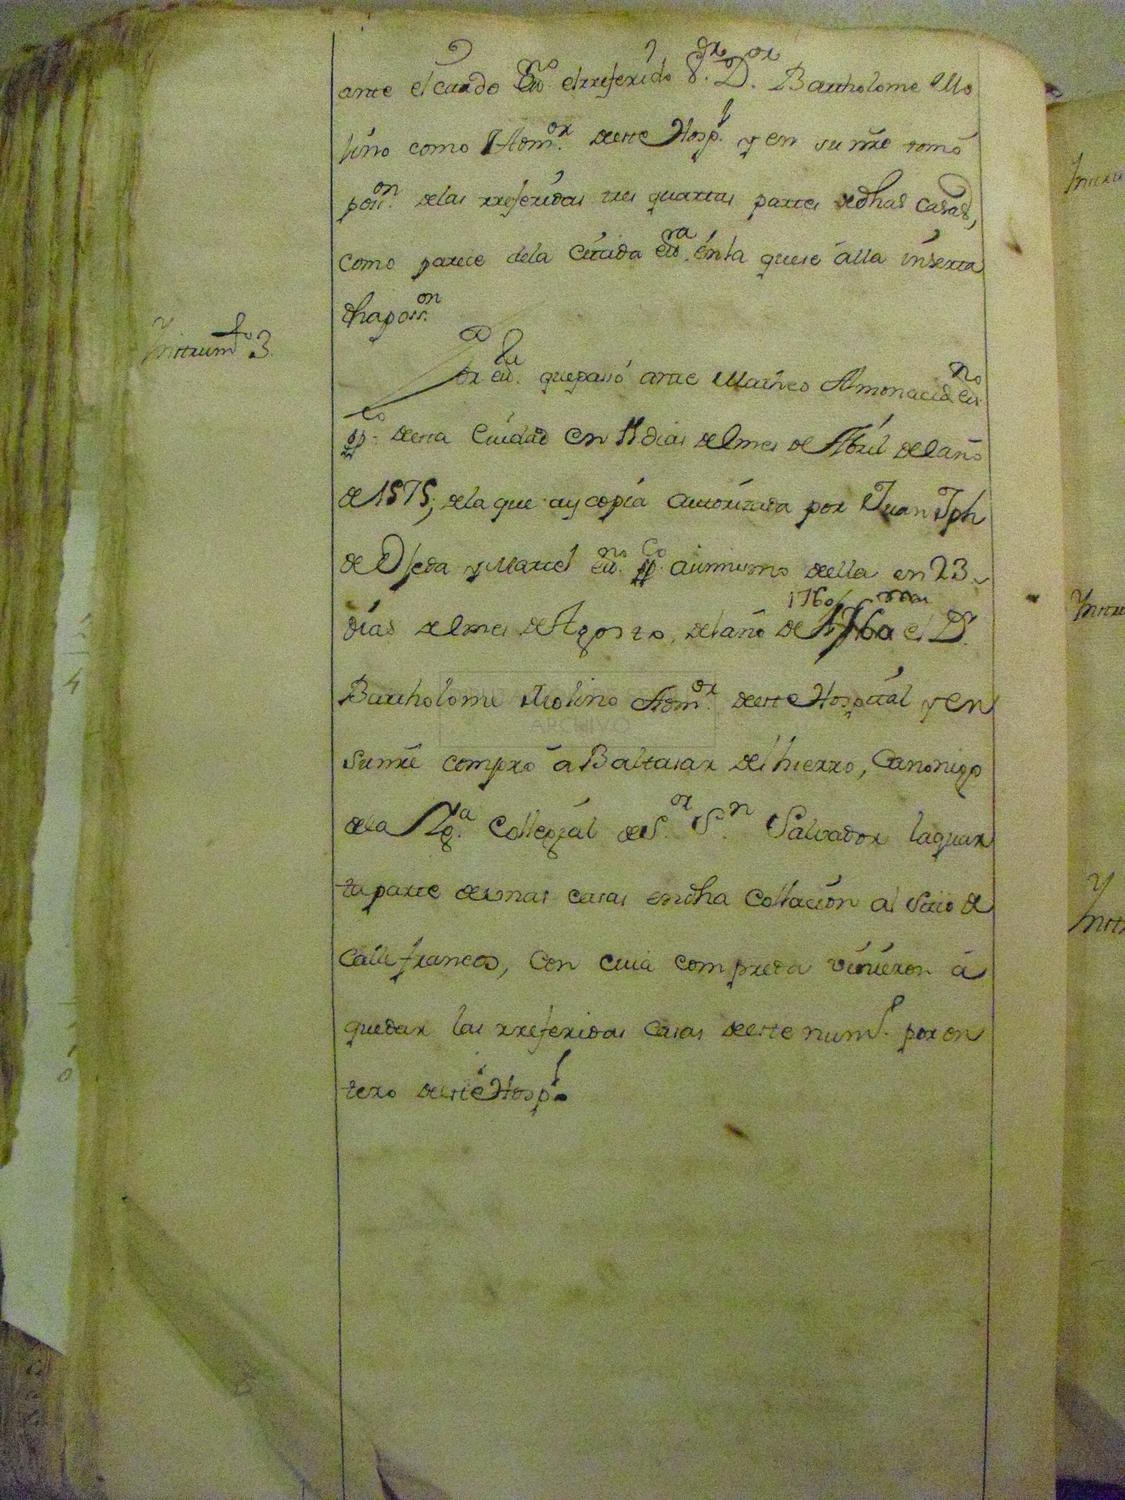 ante el citado Esno. el rreferido Sr. Dor. Bartholome Mo
lino como Admor. deeste Hospl. y en su nre tomó
poson. delas rreferidas tres quartas partes dedhas casas,
como parece dela citada esra. en la que se alla inserta
dha poson.
Instrumto. 3.
Por esra. que pasó ante Matheo Almonacid esno.
ppco. desta Ciudad en 11 dias del mes de Abril del año
de 1575, dela que ay copia autorizada por Juan Jph
de Ojeda y Marcel esno. ppco. assimismo della en 23
dias del mes de Agosto, del año de 1760 el Dr.
1760/
Bartholome Molino Admor. deeste Hospital y en
su nre compró á Baltasar del hierro, Canonigo
dela Yga. Collegial de Sor. Sn. Salvador la quar
ta parte de unas casas en dha Collacion al sitio de
Calle francos, Con cuia compra vinieron á
quedar las rreferidas casas deeste num. por en
tero deeste Hospl.
4
ARCHIVO